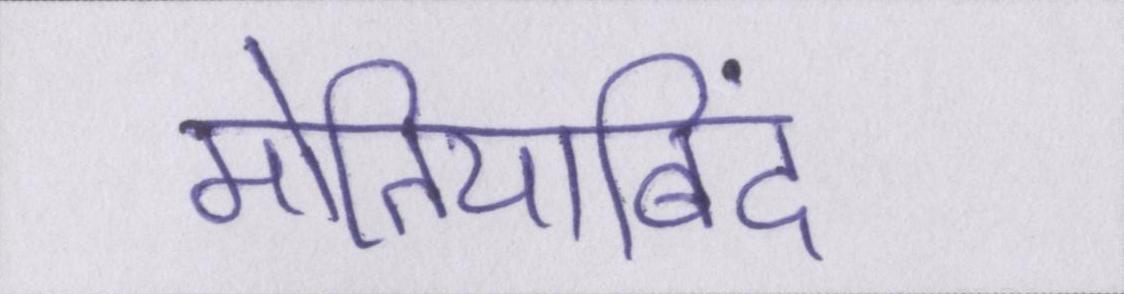 मोतियाबिंद